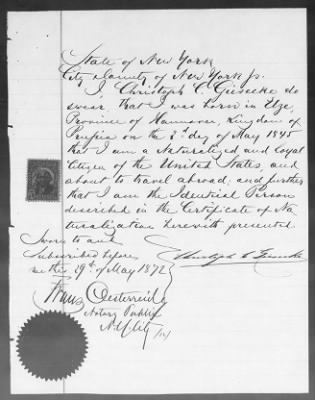 State of New York
City & County of New York ss.
I Christoph C. Giesecke do
swear, that I was born in Elze,
Province of Hannover, Kingdom of
Prussia on the 3d day of May 1845
that I am a Naturalized and loyal
Citizen of the United States, and
about to travel abroad, and further
that I am the Identical Person
described in the Certificate of Na-
turalization herewith presented.
Sworn to and
Subscribed before
me the 29th of May 1872
Christoph C. Giesecke
Franz Oesterreich
Notary Public
N.Y. City